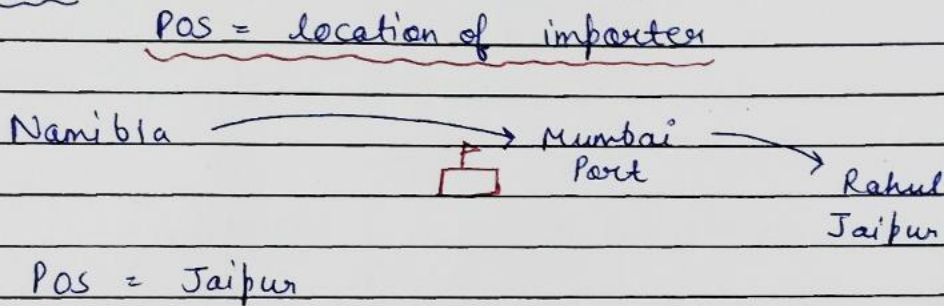 POS = location of importer
Namibia → Mumbai Port → Rahul Jaipur
POS = Jaipur